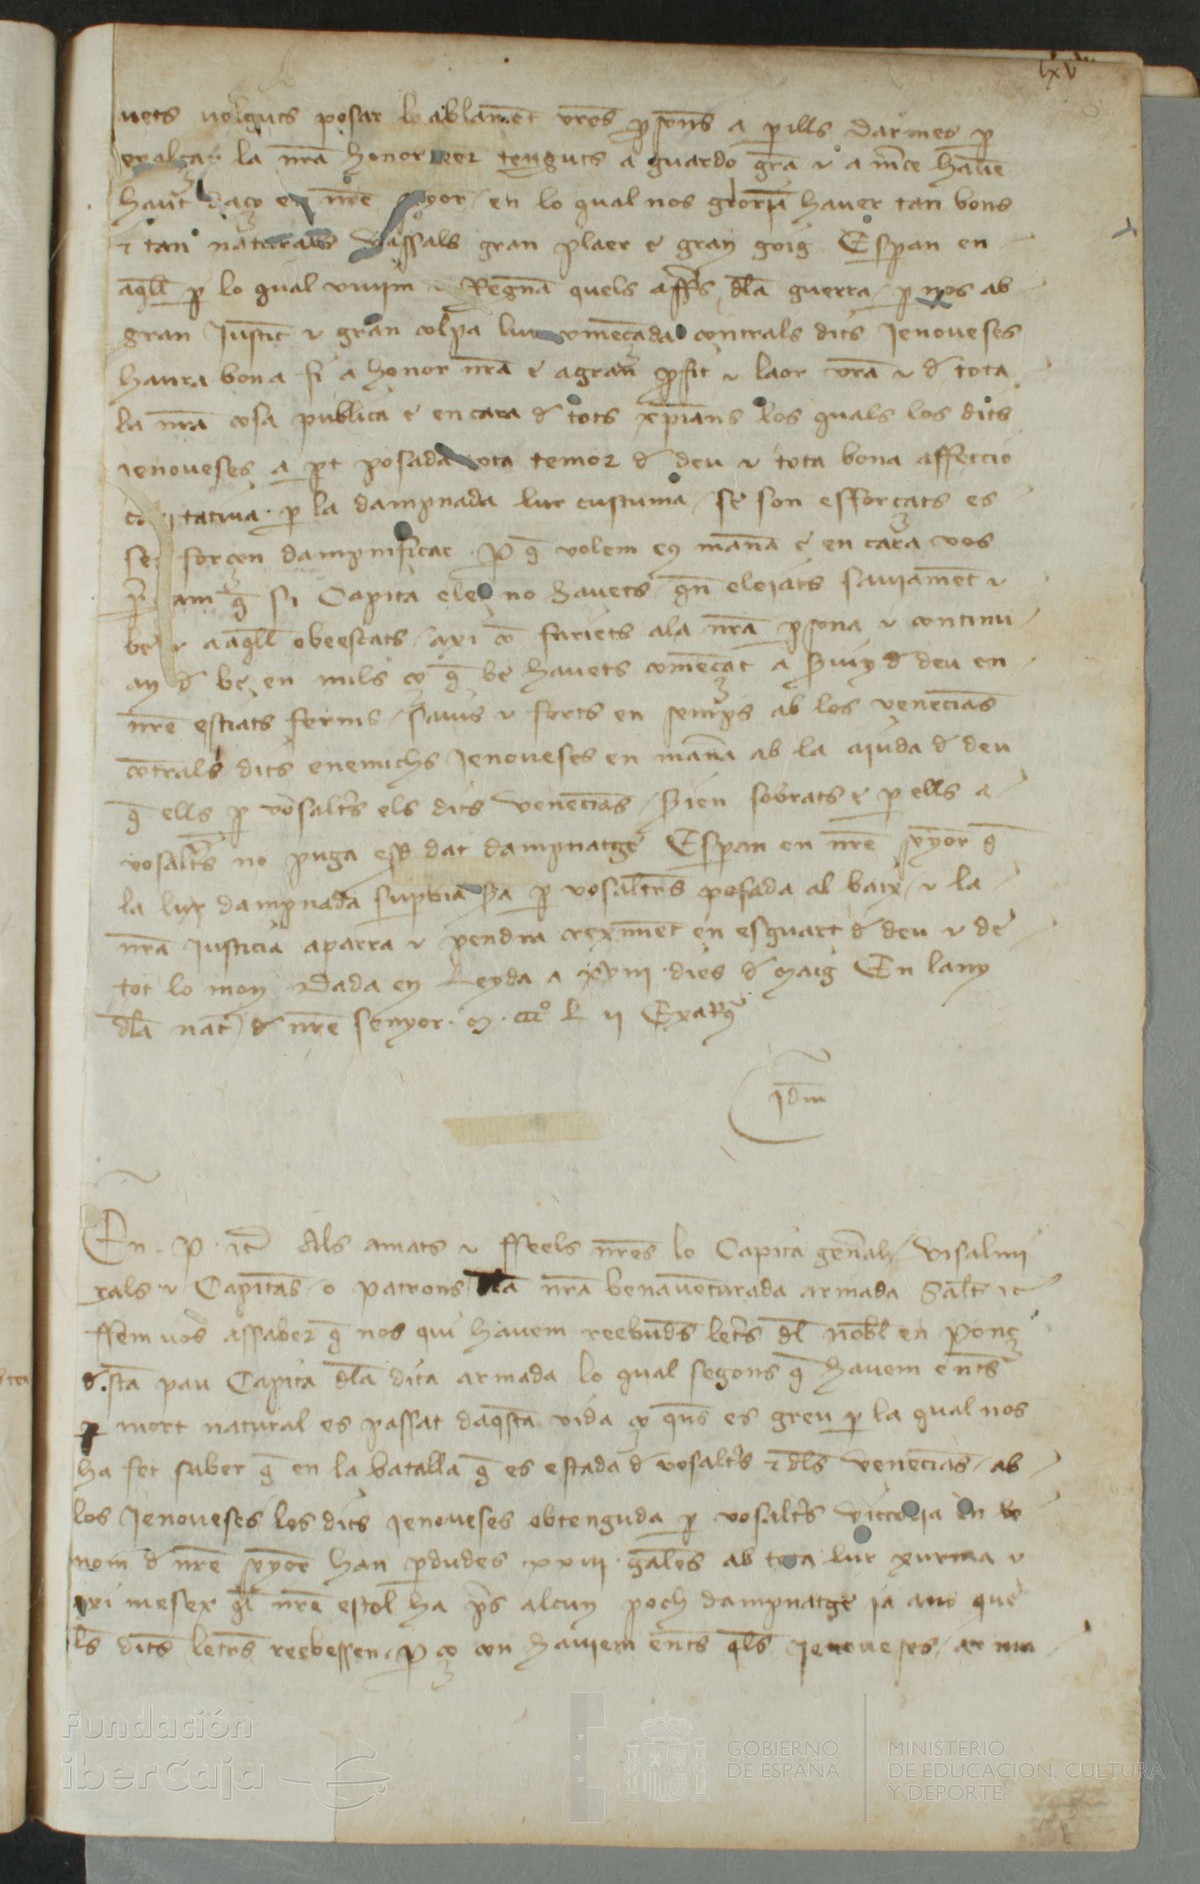 lxv
vets volguts posar loablamēt vr̄es ꝑsones a ꝑills darmes ꝑ
exalçar la nr̄a honor tenguts a guardo gr̄a ⁊ a mc̄e haven
havēt daço en nr̄e senyor en lo qual nos haver tan bons
⁊ tan naturals vassals gran plaer e gran goig Esperan en
aq̄ll ꝑ lo qual vivim ⁊ Regnā quels affers dl̄a guerra ꝑ nos ab
gran Justic ⁊ gran colpa lur comēçada contrals dits Jenoveses
haura bona fi a honor nr̄a e a gran ꝑfit ⁊ laor vr̄a ⁊ d̄ tota
la nr̄a cosa publica e encara d̄ tots xp̄ians los quals los dits
Jenoveses a pt̄ posada tota temor d̄ deu ⁊ tota bona affeccio
caritativa ꝑ la dampnada lur custuma se son esforçats es
sesforcen dampnificar · ꝑ q̄ volem eus manā e encara vos
pregam q̄ si Capita elet no havets qn̄ elejats saviamēt ⁊
be ⁊ a aq̄ll obeescats axi cō fariets ala nr̄a ꝑsona ⁊ continu
an d̄ be en mils ço q̄ be havets comēçat a Sviy d̄ deu en
nr̄e estiats ferms savis ⁊ forts en semps ab los venecians
cōtrals dits enemichs Jenoveses en manā ab la ajuda d̄ deu
q̄ ells ꝑ vosaltrs̄ els dits Venecians Sien sobrats e ꝑ ells a
vosaltrs̄ no puga esser dat dampnatge Esperan en nr̄e senyor q̄
la lur dampnada supbia Sa ꝑ vosaltrs̄ posada al baix ⁊ la
nr̄a Justicia aparra ⁊ pendra creximēt en esguart d̄ deu ⁊ de
tot lo mon Dada en Leyda a xviii dies d̄ maig En lany
dl̄a nat̄ d̄ nr̄e senyor · M · cccº L ii Exa R9
Idm
En · P · ec̄ Als amats ⁊ ffeels nr̄es lo Capita gen̄al Visalmi
ralls ⁊ Capitās o patrons dl̄a nr̄a benavēturada armada Salt̄ ec̄
ffem vos assaber q̄ nos qui havem reebudes letr̄s dl̄ nobl̄ en Ponç
d̄ sta pau Capita dl̄a dita armada lo qual segons q̄ havem en̄ts
ꝑ mort natural es passat daqsta vida ço qn̄s es greu ꝑ la qual nos
ha fet saber q̄ en la batalla q̄ es estada d̄ vosaltrs̄ ⁊ dl̄s Venecians ab
los Jenoveses los dits Jenoveses obtenguda ꝑ vosaltrs̄ Victoria en
nom d̄ nr̄e senyor han ꝑdudes xxiii · galēs ab tota lur xurma ⁊
axi mesex ql̄ nr̄e estol ha pr̄s alcun poch dampnatge ja ans que
ls̄ dits letrs̄ reebessen · ꝑ ço con haviem en̄ts qls̄ Jenoveses arma
Fundación
iberCaja
GOBIERNO
DE ESPAÑA
MINISTERIO
DE EDUCACIÓN, CULTURA
Y DEPORTE